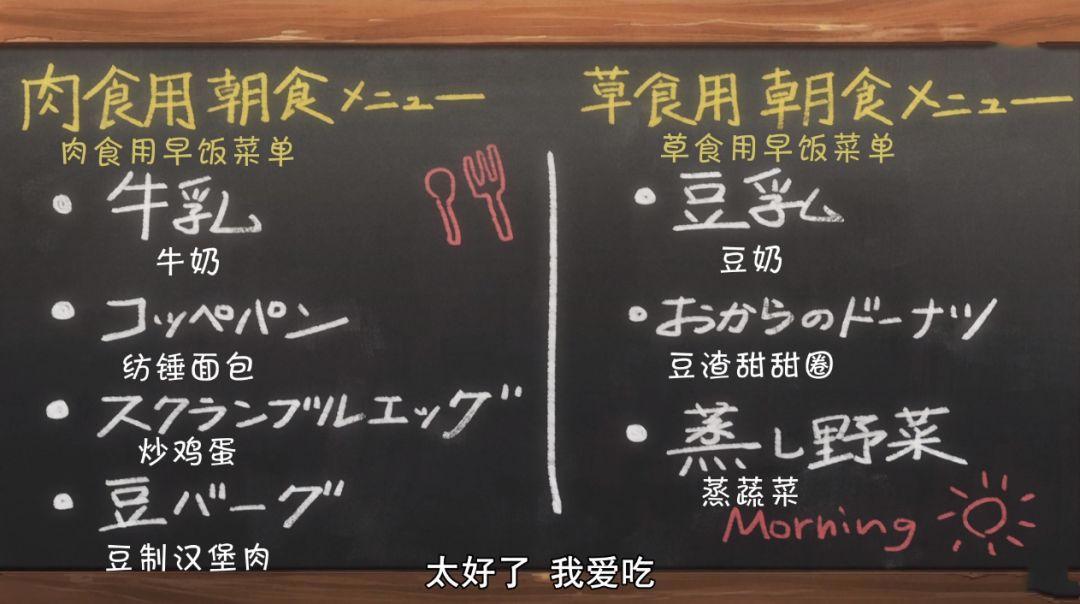 肉食用朝食メニュー
肉食用早饭菜单
・牛乳
牛奶
・コッペパン
纺锤面包
・スクランブルエッグ
炒鸡蛋
・豆バーグ
豆制汉堡肉
草食用朝食メニュー
草食用早饭菜单
・豆乳
豆奶
・おからのドーナツ
豆渣甜甜圈
・蒸し野菜
蒸蔬菜
Morning
太好了 我爱吃